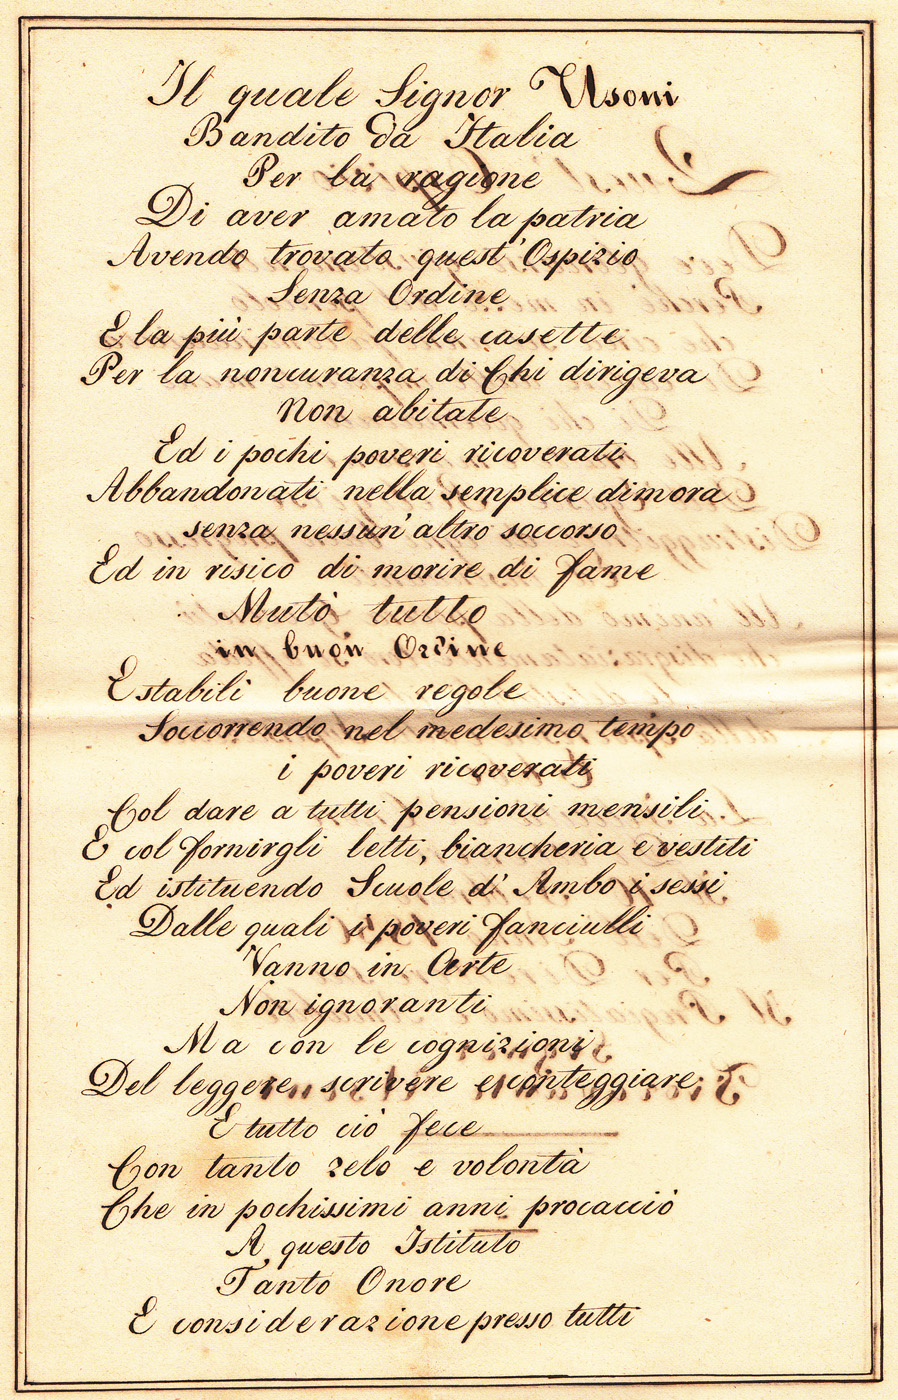 Il quale Signor Usoni
Bandito da Italia
Per la ragione
Di aver amato la patria
Avendo trovato quest' Ospizio
Senza Ordine
E la più parte delle casette
Per la noncuranza di Chi dirigeva
Non abitate
Ed i pochi poveri ricoverati
Abbandonati nella semplice dimora
senza nessun' altro soccorso
Ed in risico di morire di fame
Mutò tutto
in buon Ordine
E stabilì buone regole
Soccorrendo nel medesimo tempo
i poveri ricoverati
Col dare a tutti pensioni mensili
E col fornirgli letti, biancheria e vestiti
Ed istituendo Scuole d' Ambo i sessi
Dalle quali i poveri fanciulli
Vanno in Arte
Non ignoranti
Ma con le cognizioni
Del leggere scrivere e conteggiare
E tutto ciò fece
Con tanto zelo e volontà
Che in pochissimi anni procacciò
A questo Istituto
Tanto Onore
E considerazione presso tutti